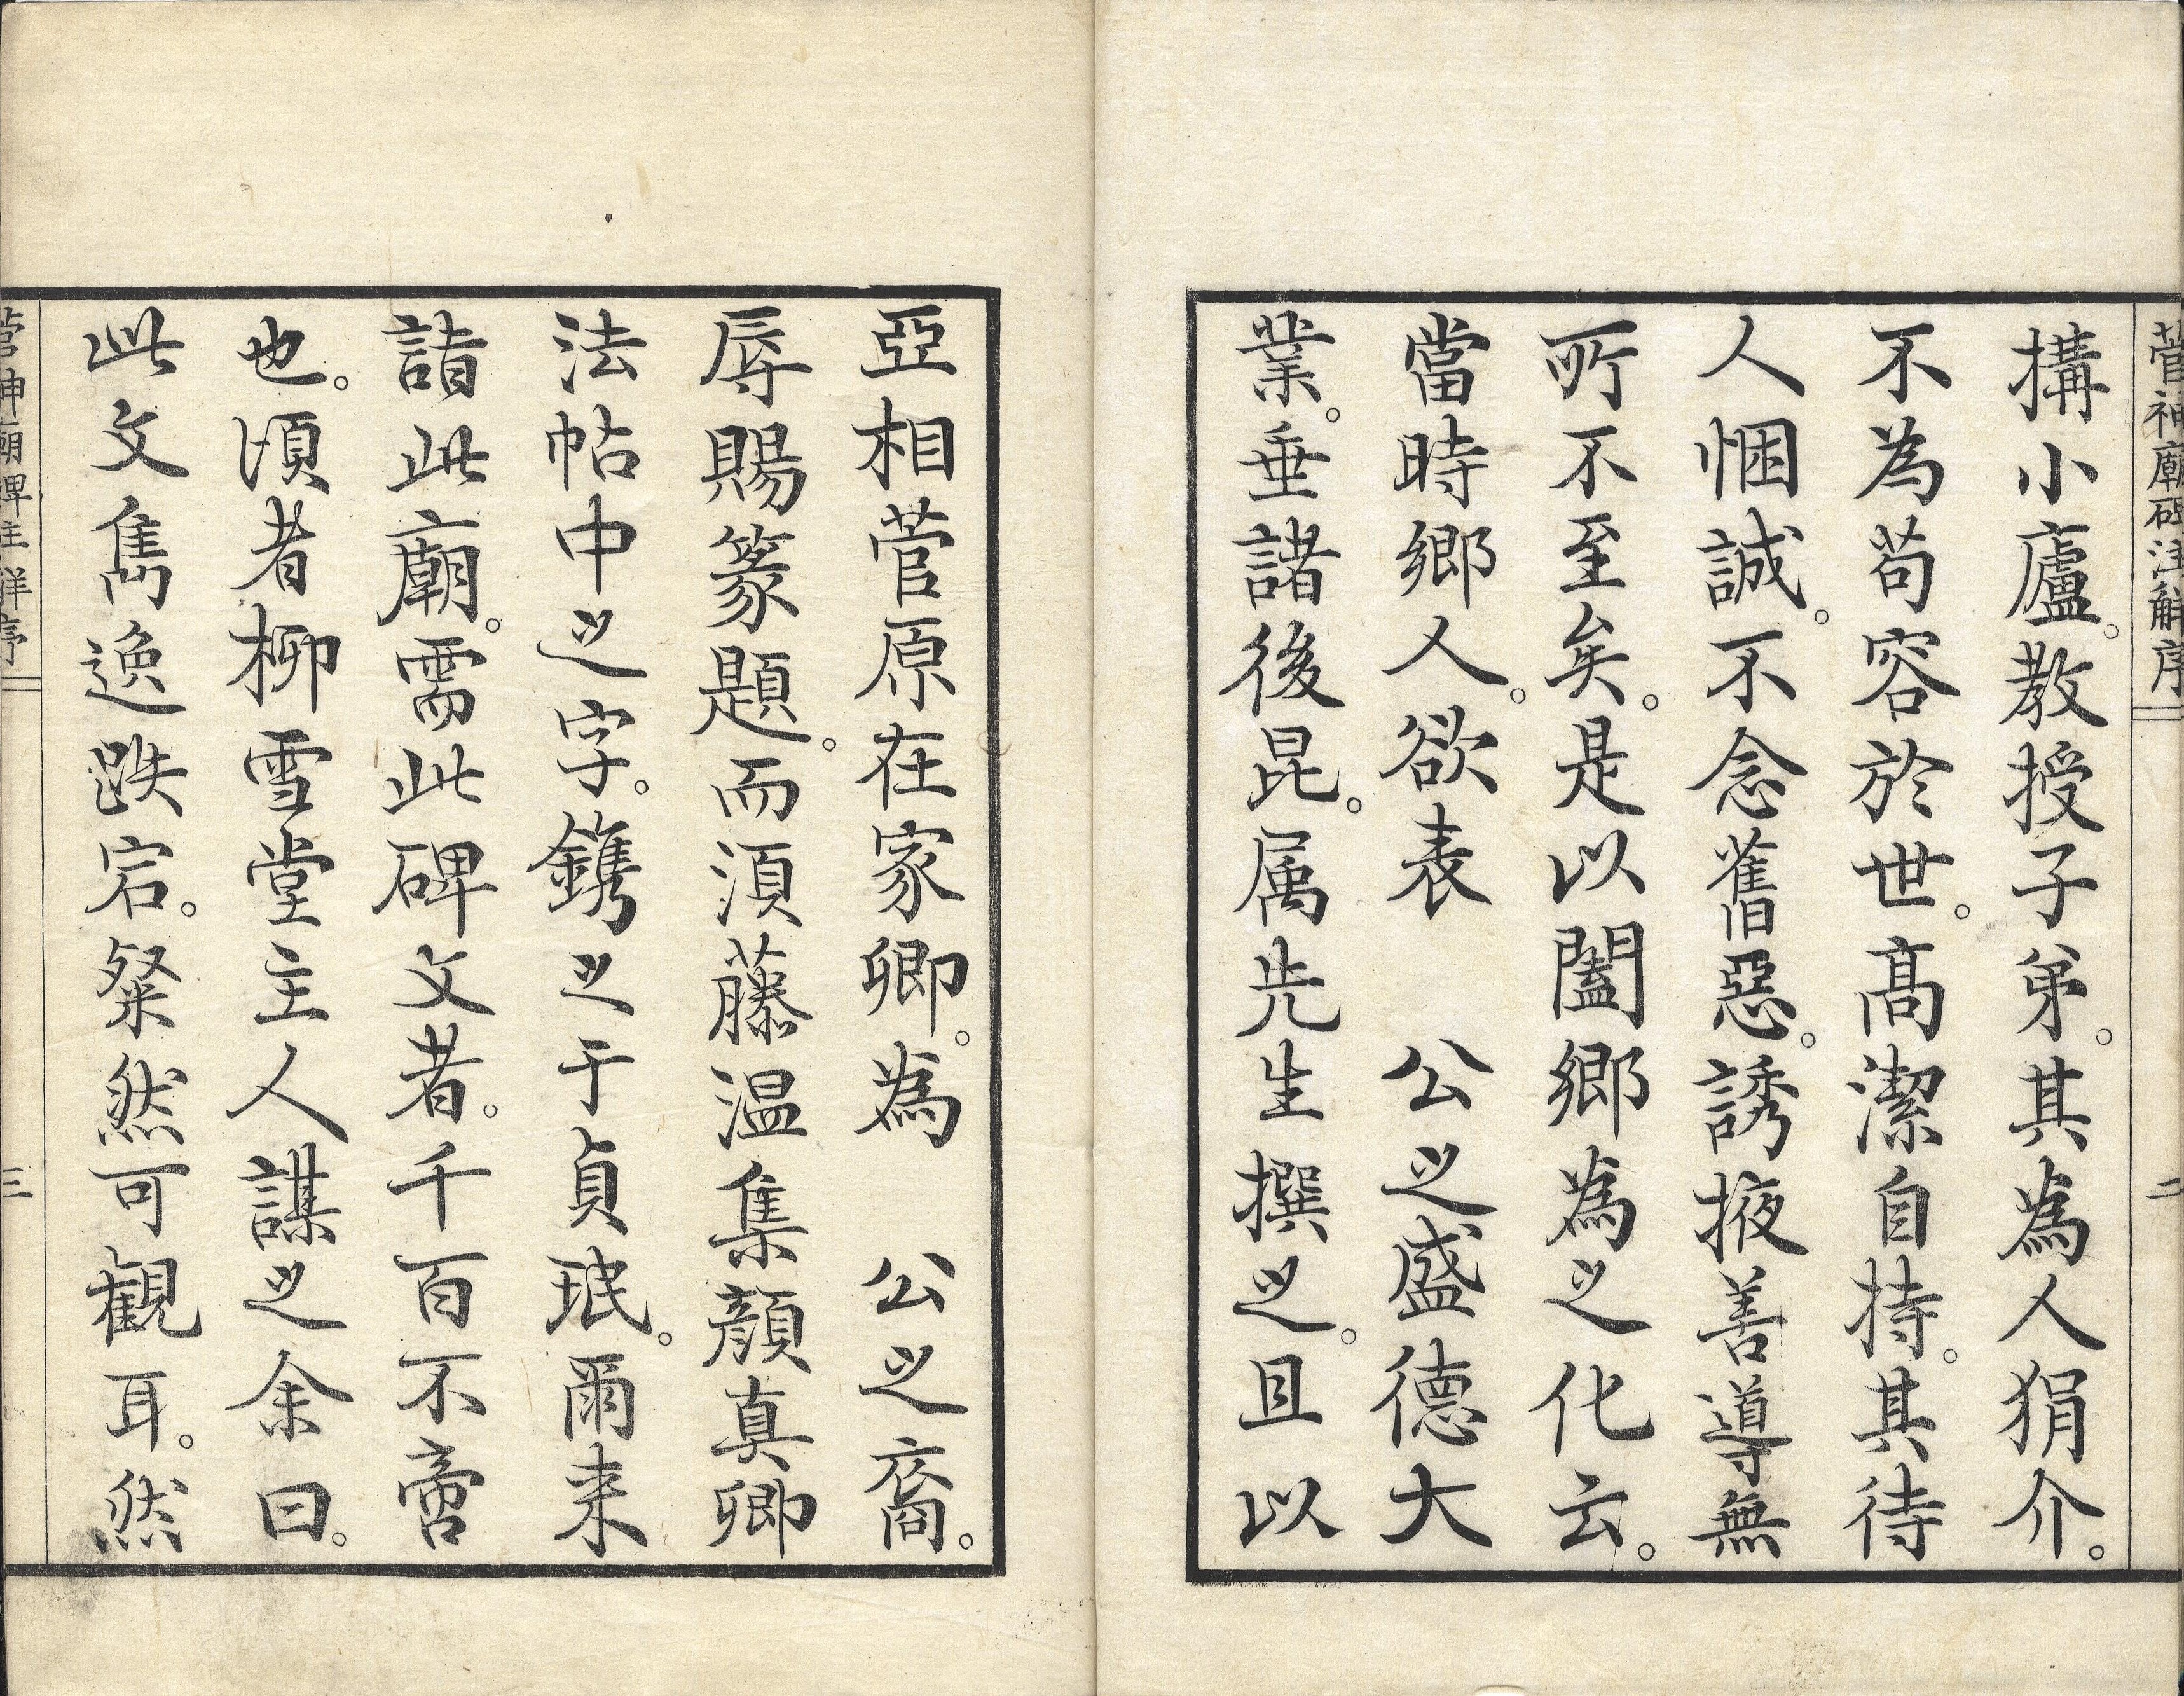 菅神廟碑注解序　二
搆小廬。教授子弟。其為人狷介。
不為苟容於世。高潔自持。其待
人悃誠。不念舊惡。誘掖善導無
所不至矣。是以闔鄉為之化云。
當時鄉人。欲表　公之盛德大
業。垂諸後昆。属先生撰之。且以
亞相菅原在家卿。為　公之裔。
辱賜篆題。而須藤温集顔真卿
法帖中之字。鐫之于貞珉。爾来
詣此廟。需此碑文者。千百不啻
也。頃者柳雪堂主人謀之余曰。
此文雋逸跌宕。粲然可観耳。然
菅神廟碑注解序　三